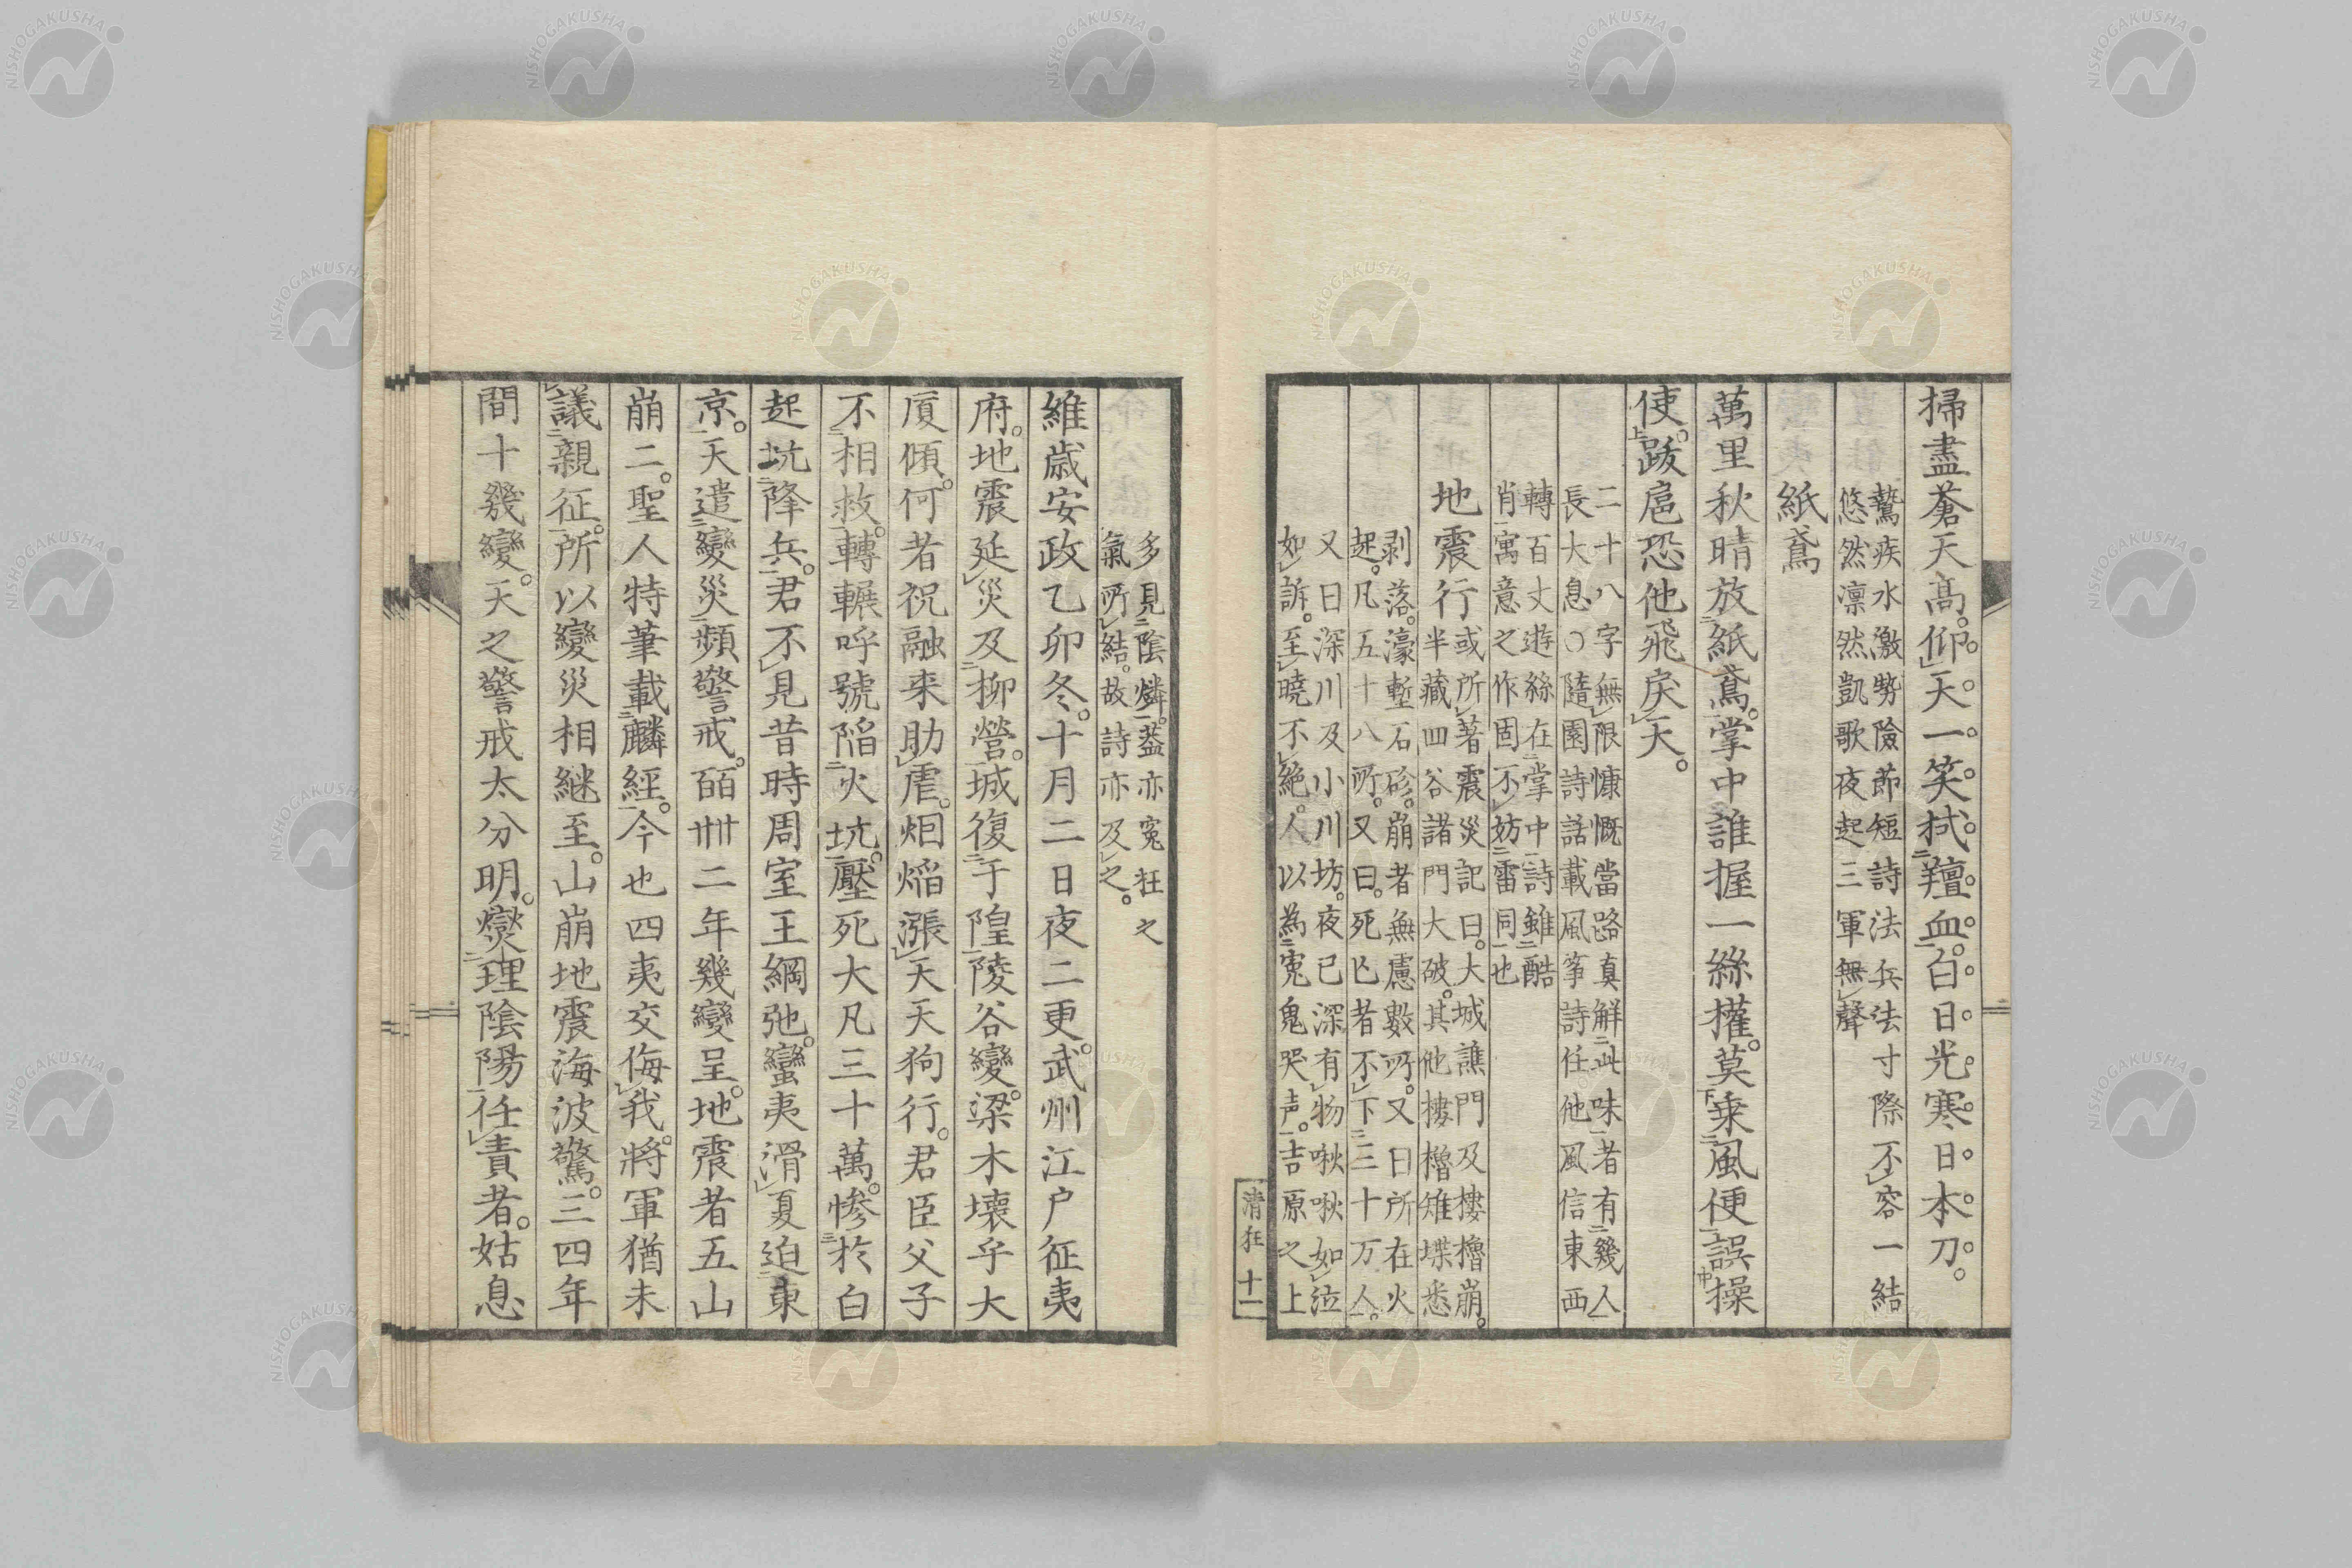 掃盡蒼天高。仰天一笑拭羶血。白日光寒日本刀。
鷙疾水激勢險節短詩法兵法寸際不容一結
悠然凛然凱歌夜起三軍無聲
紙鳶
萬里秋晴放紙鳶。掌中誰握一絲權。莫乗風便誤操
使。跋扈恐他飛戻天。
二十八字無限慷慨當路真解此味者有幾人
長大息○隨園詩話載風筝詩任他風信東西
轉百丈遊絲在掌中詩雖酷
肖寓意之作固不妨雷同也
地震行
或所著震災記曰。大城譙門及樓櫓崩。
半藏四谷諸門大破。其他樓櫓雉堞悉
剥落。濠塹石砂。崩者無慮數所。又曰所在火
起。凡五十八所。又曰。死亡者不下二三十万人。
又曰深川及小川坊。夜已深有物啾啾如泣
如訴。至曉不絶。人以為寃鬼哭声。吉原之上
清狂 十一
多見陰燐。葢亦寃枉之
氣所結。故詩亦及之。
維歳安政乙卯冬。十月二日夜二更。武州江戸征夷
府。地震延災及柳營。城復于隍陵谷變。梁木壊乎大
厦傾。何者祝融来助虐。烟焔漲天天狗行。君臣父子
不相救。轉輾呼號陷火坑。壓死大凡三十萬。惨於白
起坑降兵。君不見昔時周室王綱弛。蠻夷滑夏迫東
京。天遣變災頻警戒。皕卌二年幾變呈。地震者五山
崩二。聖人特筆載麟經。今也四夷交侮我。將軍猶未
議親征。所以變災相継至。山崩地震海波驚。三四年
間十幾變。天之警戒太分明。燮理陰陽任責者。姑息